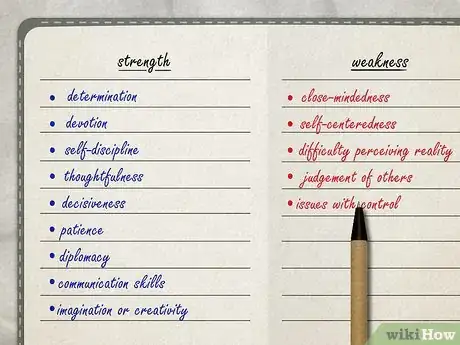 strength
determination
devotion
self-discipline
thoughtfulness
decisiveness
patience
diplomacy
communication skills
imagination or creativity
weakness
close-mindedness
self-centeredness
difficulty perceiving reality
judgement of others
issues with control
wikiHow